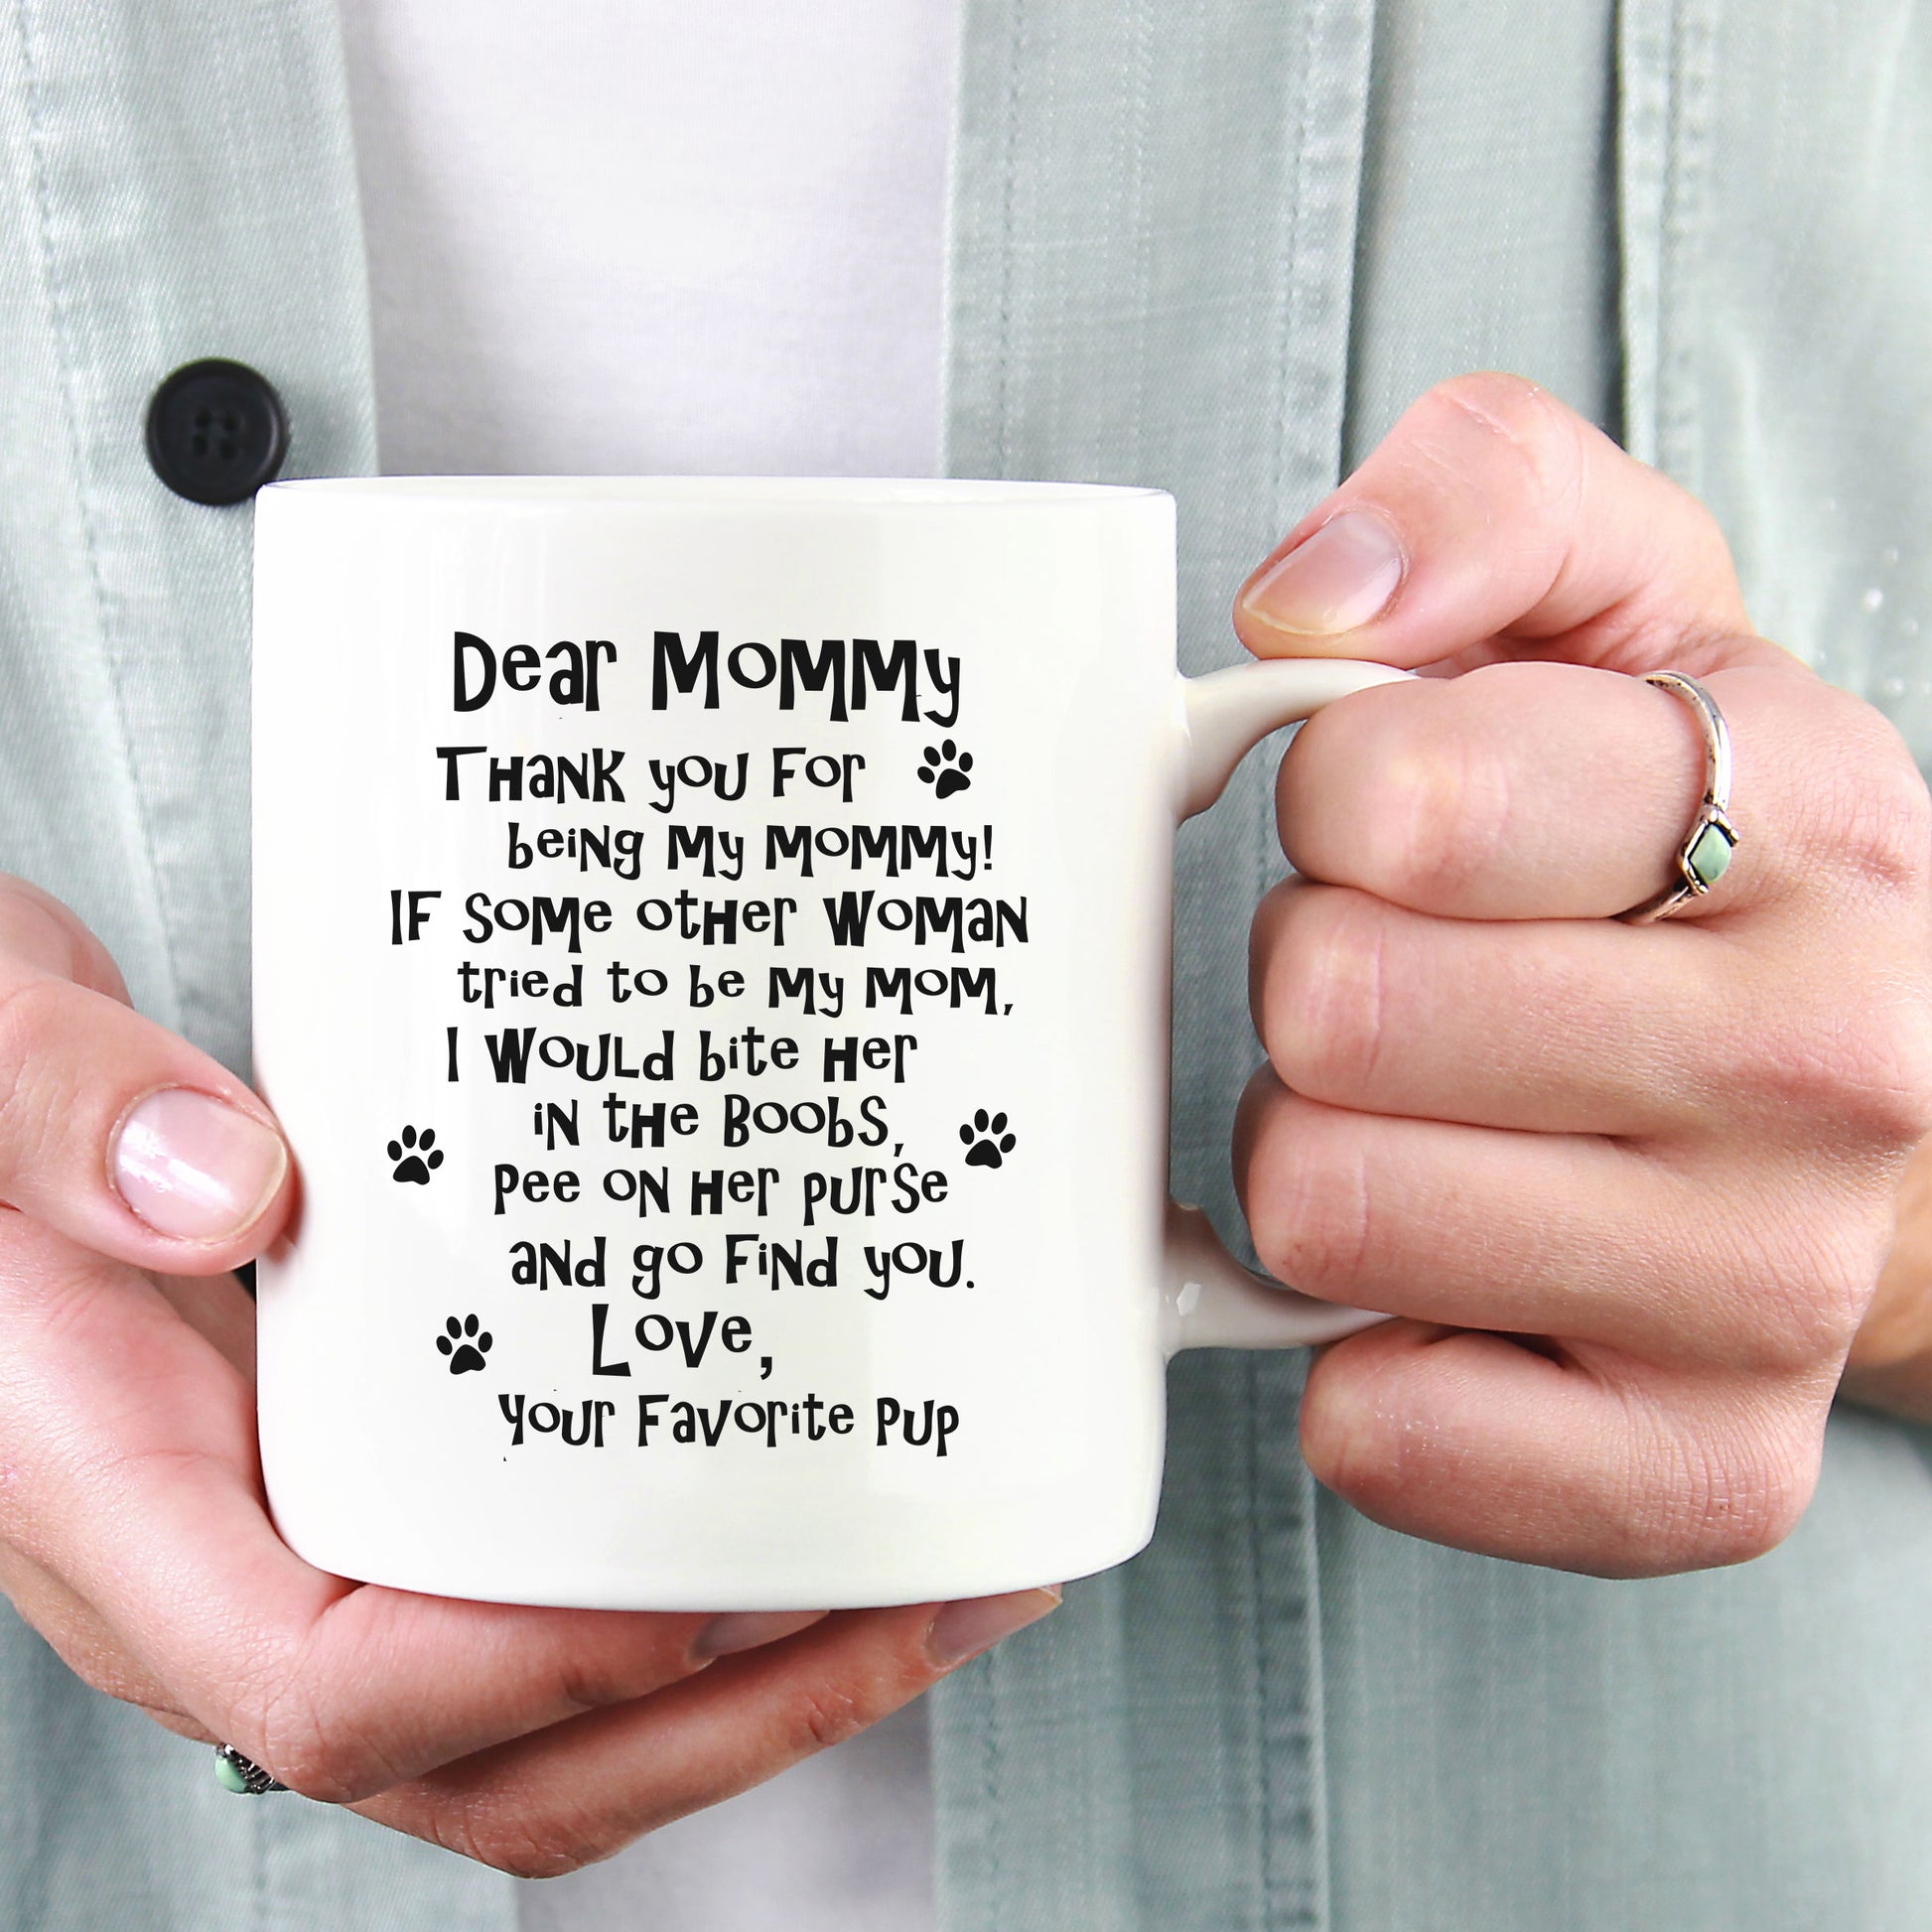 Dear Mommy
Thank you for
being my mommy!
If some other woman
tried to be my mom,
I would bite her
in the Boobs,
pee on her purse
and go find you.
Love,
your Favorite Pup